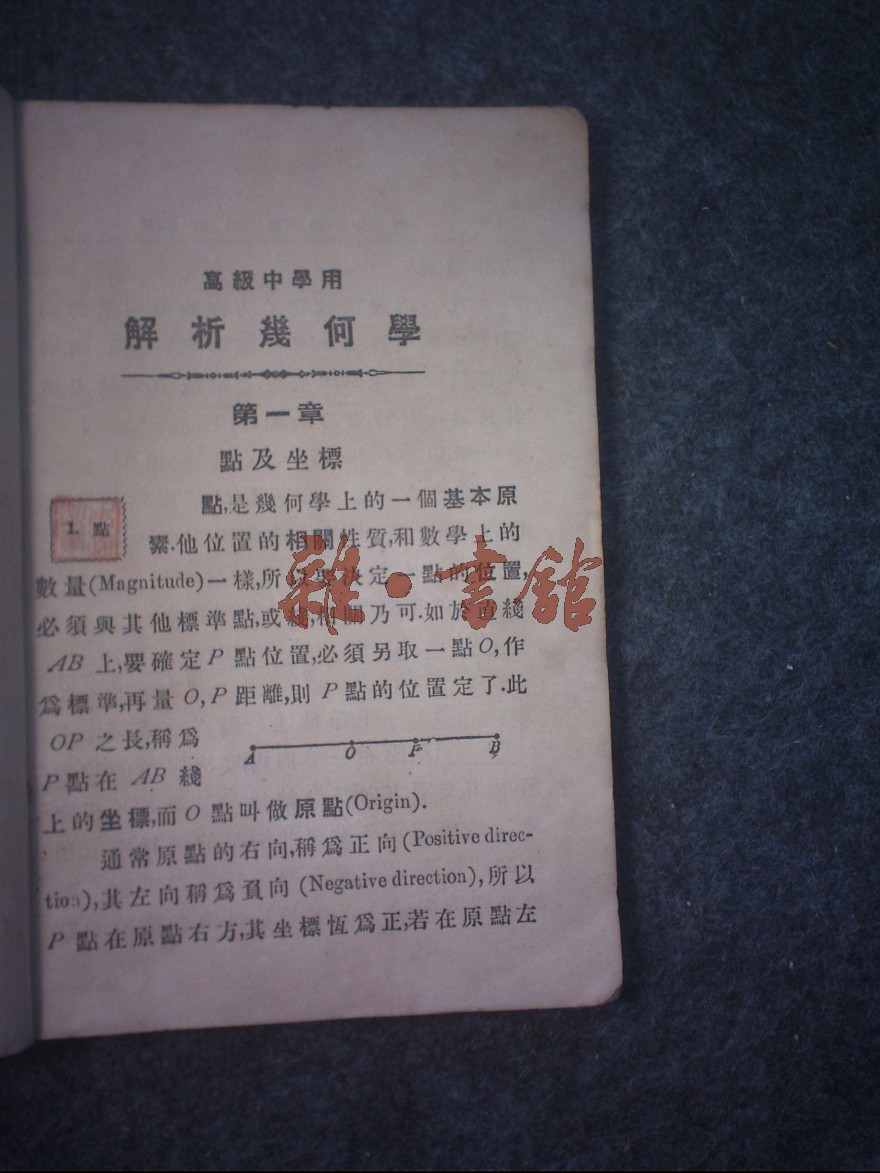 高級中學用
解析幾何學
第一章
點及坐標
1. 點
點,是幾何學上的一個基本原
素.他位置的相關性質,和數學上的
數量(Magnitude)一樣,所以要決定一點的位置,
必須與其他標準點,或綫,相關乃可.如於直綫
AB上,要確定P點位置,必須另取一點O,作
爲標準,再量O,P距離,則P點的位置定了.此
OP之長,稱爲
P點在AB綫
A O P B
上的坐標,而O點叫做原點(Origin).
通常原點的右向,稱爲正向(Positive direc-
tion),其左向稱爲負向(Negative direction),所以
P點在原點右方,其坐標恆爲正,若在原點左
雜·書館